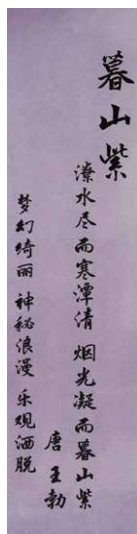 暮山紫
潦水尽而寒潭清 烟光凝而暮山紫
唐 王勃
梦幻绮丽 神秘浪漫 乐观洒脱